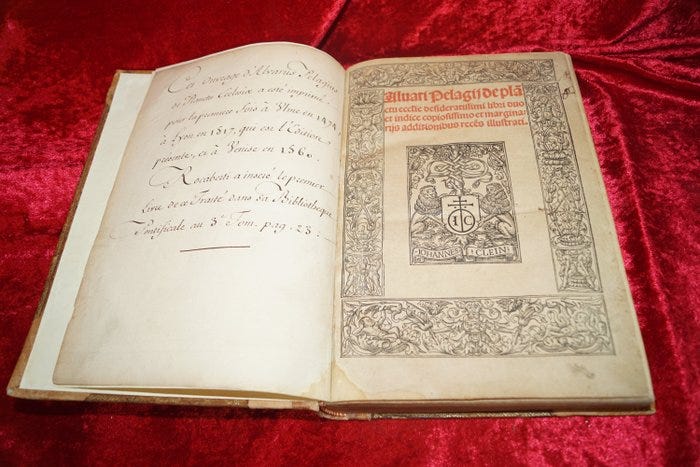 Cet Ouvrage d'Alvarus Pelagius
de Planctu Ecclesiæ a eté imprimé
pour la premiere fois à Ulme en 1474
à Lyon en 1517, qui est l'Edition
presente, et à Venise en 1560.
Rocaberti a inseré le premier
Livre de ce Traité dans sa Bibliotheque
Pontificale au 3e Tom. pag. 23.
Aluari Pelagij de plā
ctu ecclesie desideratissimi libri duo
et indice copiosissimo et margina-
rijs additionibus recēs illustrati.
I C
IOHANNES CLEIN